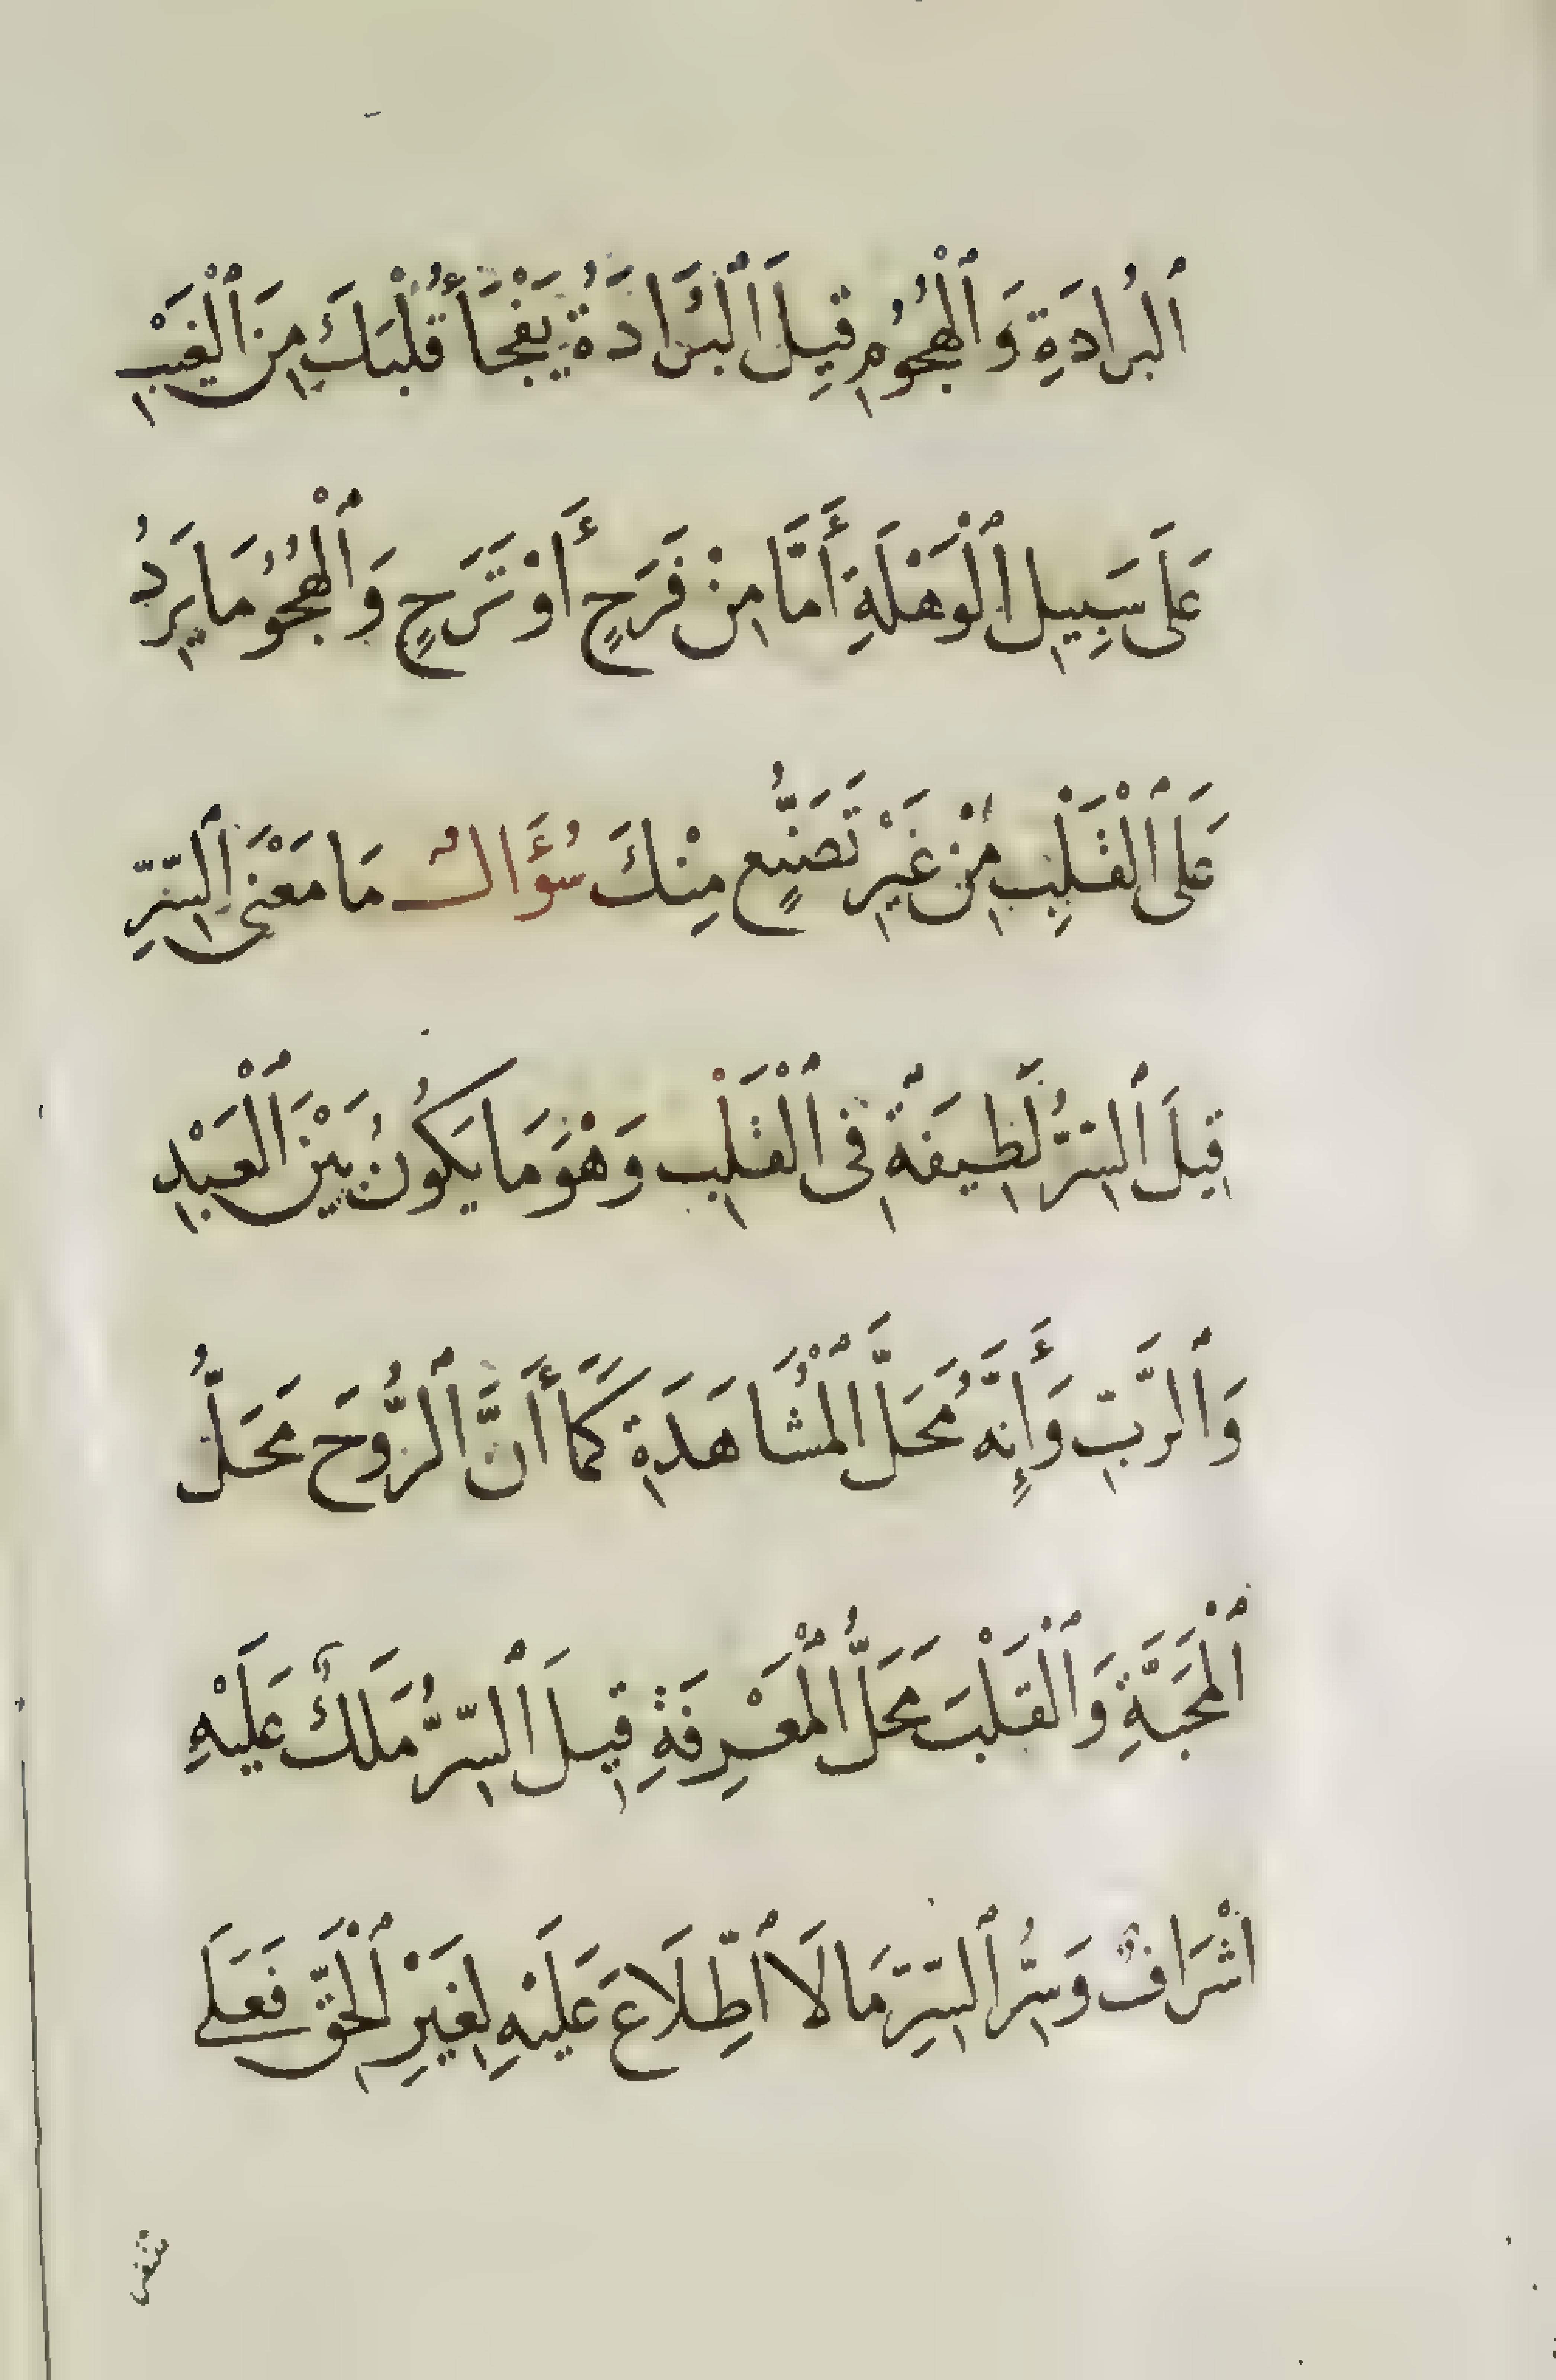 ٱلبُرادَةِ وَٱلْهُجُوْمِ قِيلَ ٱلْبَرَادَةُ يَفْجَأُ قَلْبَكَ مِنَ ٱلْغَيْبِ
عَلَى سَبِيلِ ٱلْوَهْلَةِ أَمَّا مِنْ فَرَحٍ أَوْ تَرَحٍ وَٱلْهُجُوُمَا يَرِدُ
عَلَى ٱلْقَلْبِ مِنْ غَيْرِ تَصَنُّعٍ مِنْكَ سُؤَالٌ مَا مَعْنَى ٱلسِّرِّ
قِيلَ ٱلسِّرُّ لَطِيفَةٌ فِى ٱلْقَلْبِ وَهْوَ مَا يَكُونُ بَيْنَ ٱلْعَبْدِ
وَٱلرَّبِّ وَأَنَّهُ مَحَلَّ ٱلْمُشَاهَدَةِ كَمَا أَنَّ ٱلرُّوحَ مَحَلُّ
ٱلْمَحَبَّةِ وَٱلْقَلْبَ مَحَلُّ ٱلْمَعْرِفَةِ قِيلَ ٱلسِّرُّ مَالَكَ عَلَيْهِ
اشْرَافٌ وَسِرُّ ٱلسِّرِّ مَا لَا ٱطِّلَاعَ عَلَيْهِ لِغَيْرِ ٱلْحَقِّ فَعَلَى